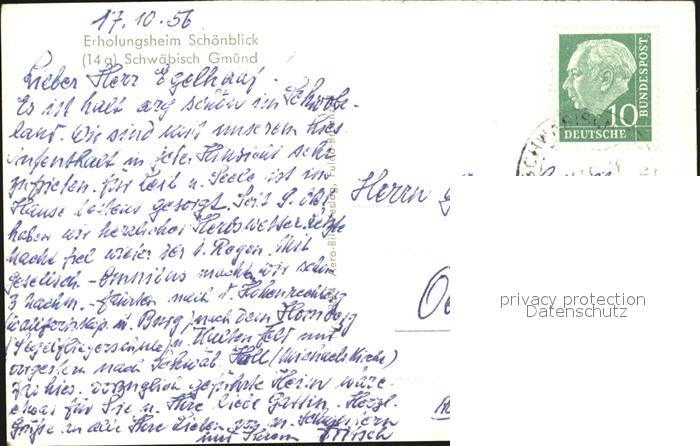 17.10.56
Erholungsheim Schönblick
(14a) Schwäbisch Gmünd
Lieber Herr Egelhaaf.
Es ist halt arg schön im Schwobe-
land. Wir sind mit unserem hies.
Aufenthalt in jeder Hinsicht sehr
zufrieden. Für Leib u. Seele ist im
Hause bestens gesorgt. Seit 9. Okt.
haben wir herrliches Herbstwetter. Letzte
Nacht fiel wieder der 1. Regen. Mit
Omnibus machten wir schon
3 Nachm.-Fahrten nach d. Hohenrechberg
u. Burg/nach dem Hornberg
(Segelfliegerschule) u. und
vorgestern nach Schwäb. Hall (Michaelskirche)
hies. vorzüglich geführte Heim wäre
etwas für Sie u. Ihre liebe Gattin. Herzl.
Grüße an alle Ihre Lieben
und Ihrem Fritsch
Herrn
10
DEUTSCHE
BUNDESPOST
privacy protection
Datenschutz